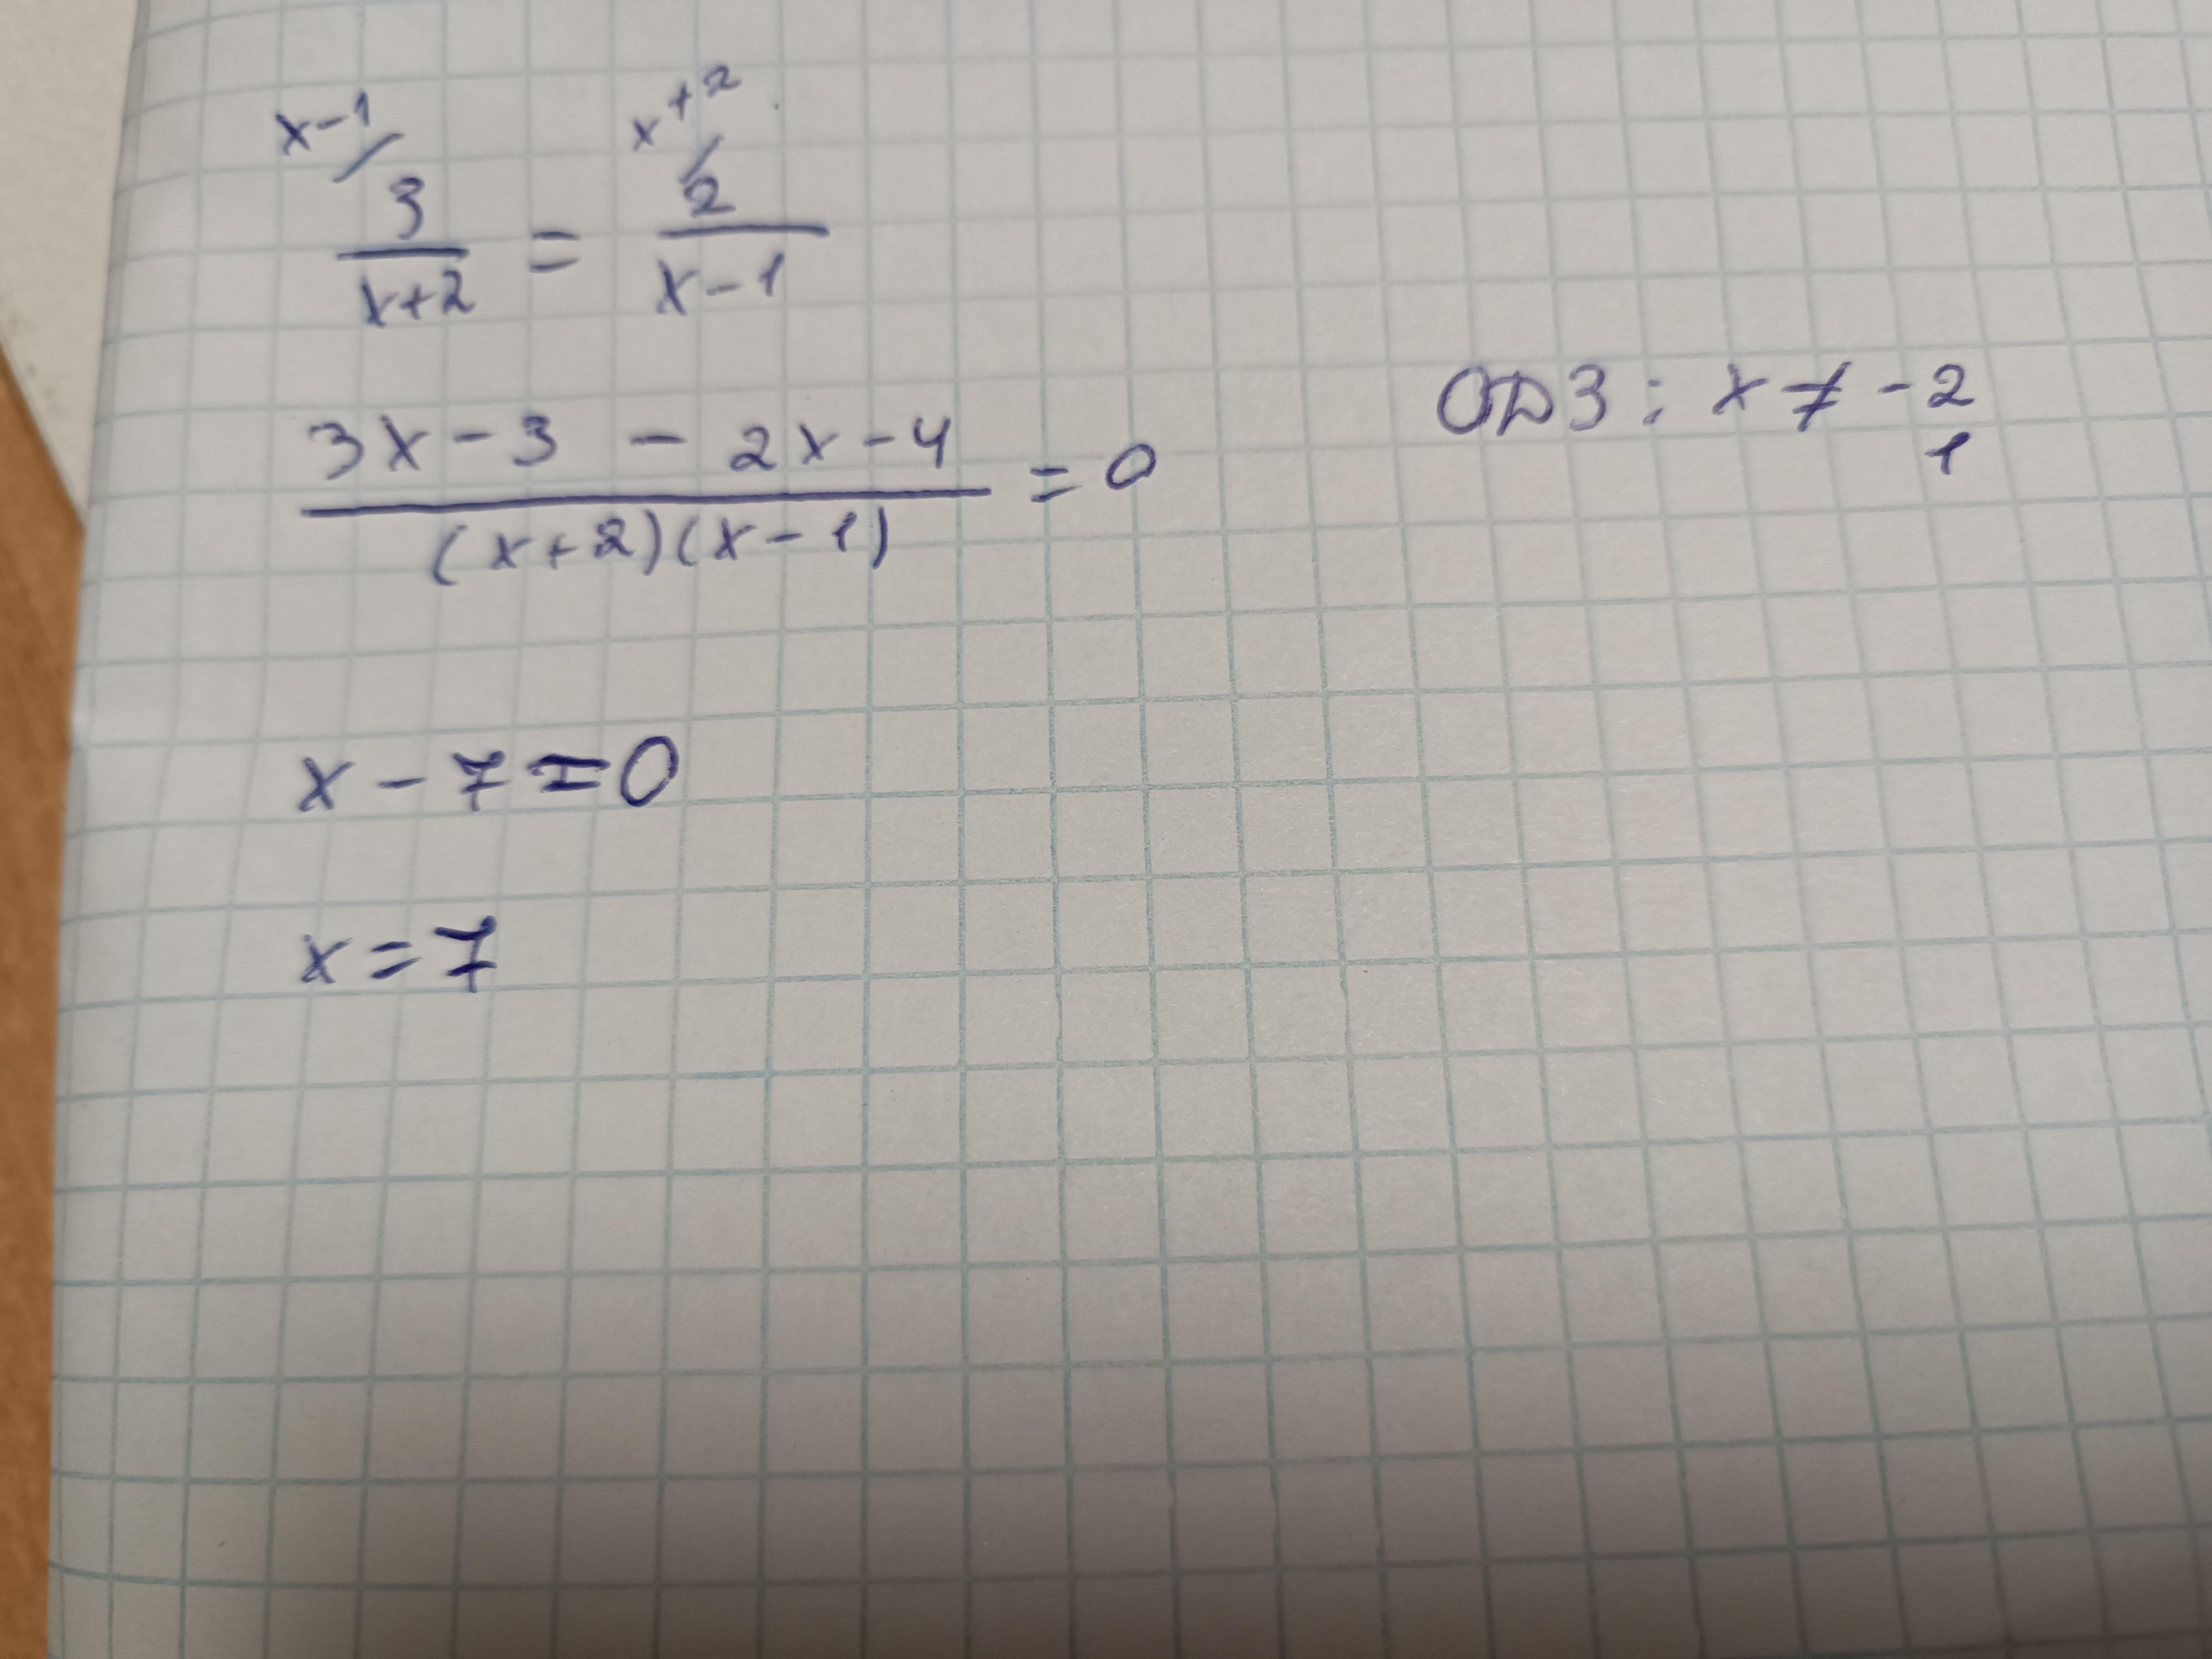 x-1/ x+2/
3/(x+2) = 2/(x-1)
(3x-3 - 2x-4)/((x+2)(x-1)) = 0
ОДЗ: x ≠ -2
1
x - 7 = 0
x = 7